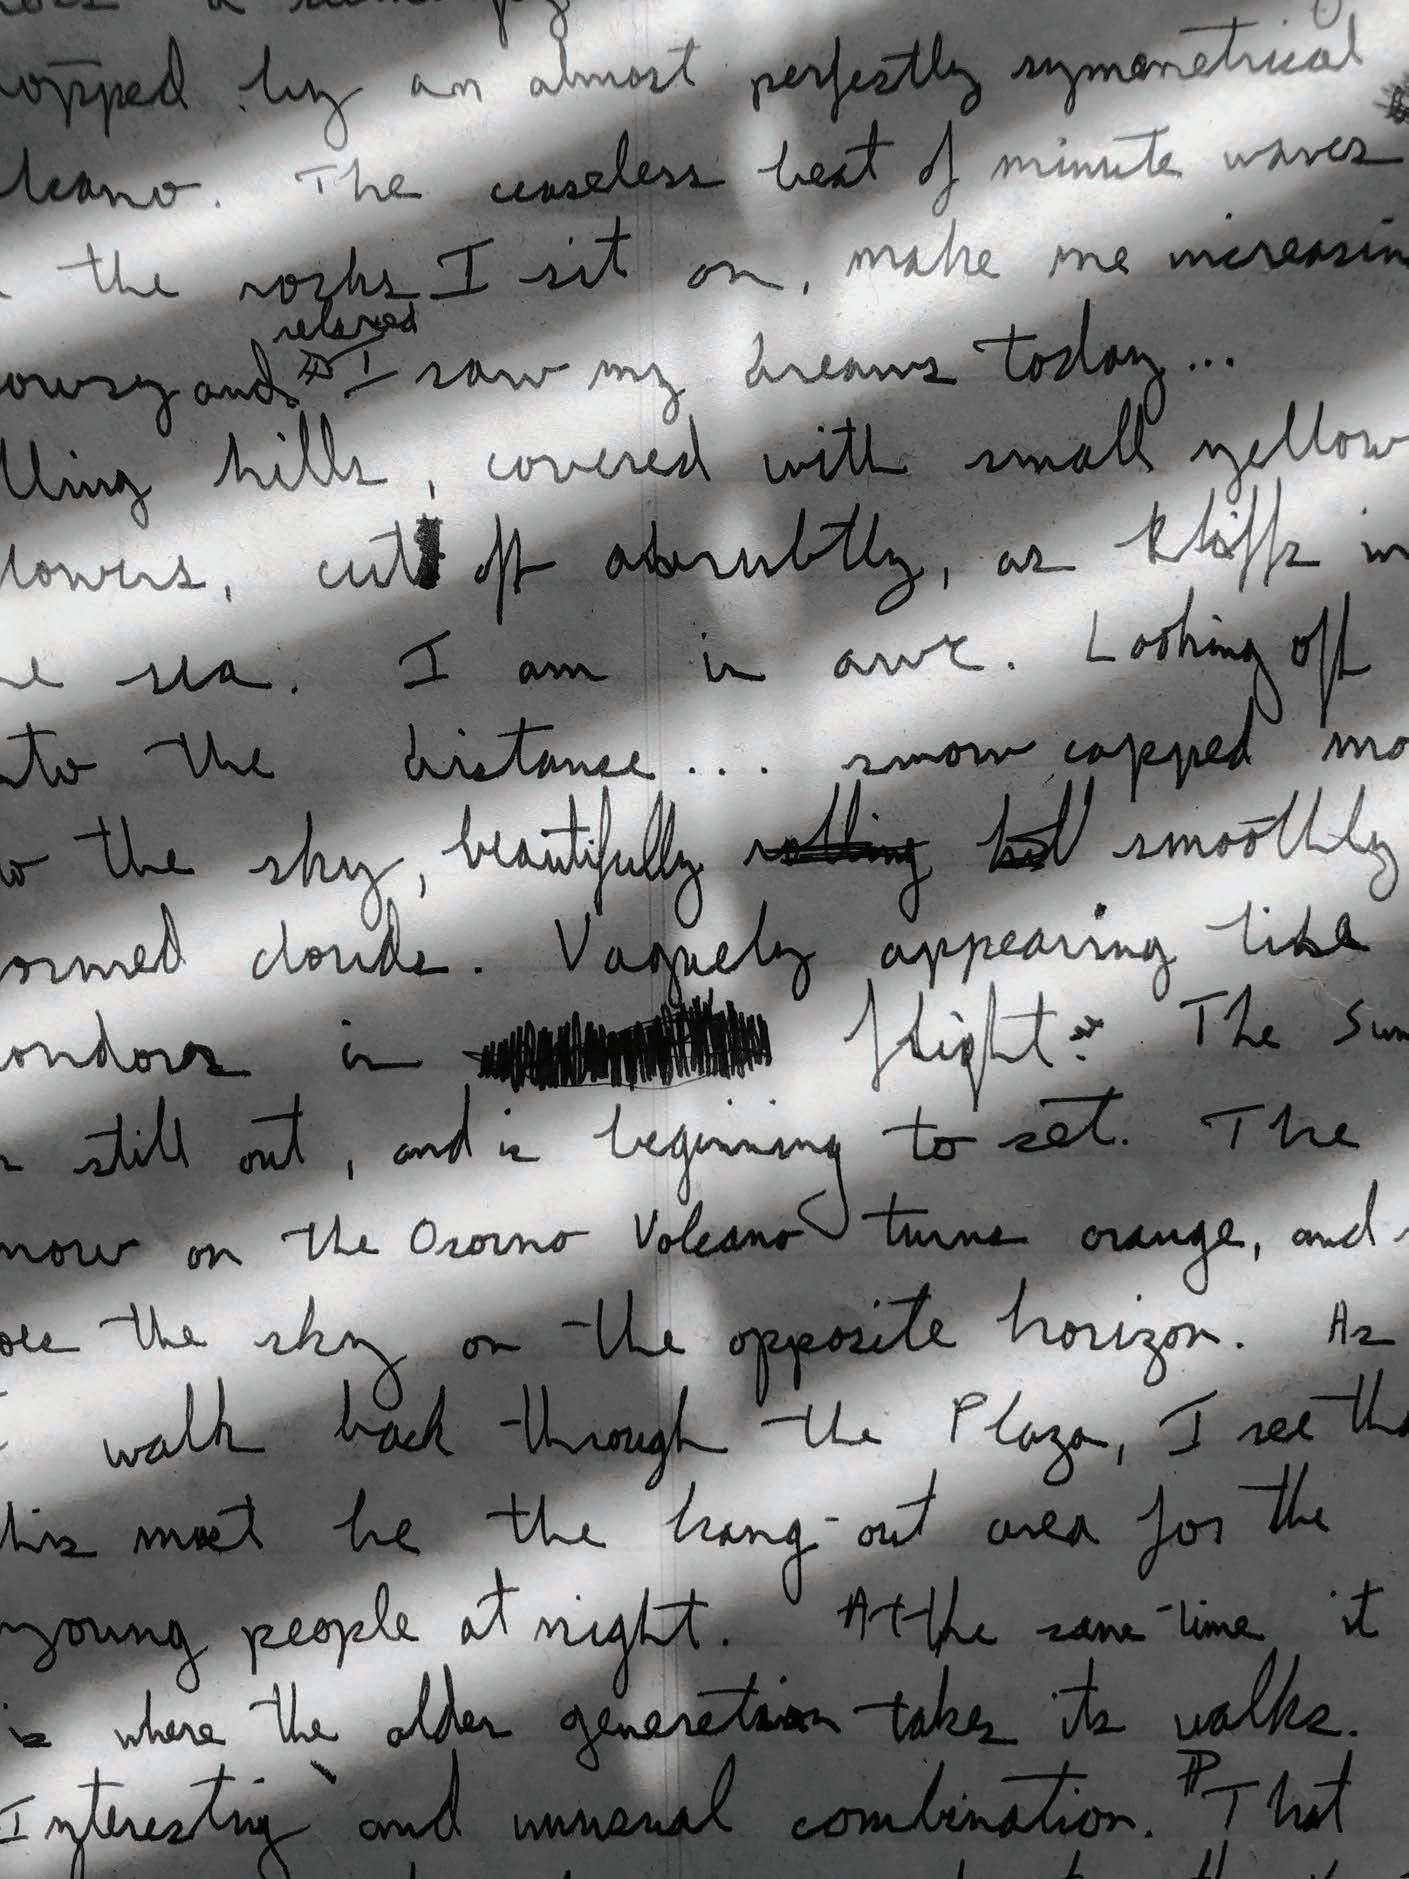 opped by an almost perfectly symmetrical
lcano. The ceaseless beat of minute waves
the rocks I sit on, make me increasin
relaxed
owsy and I saw my dreams today...
lling hills, covered with small yellow
lowers, cut off abrubtly, as kliffs in
e sea. I am in awe. Looking off
nto the distance... snow capped mo
w the sky, beautifully rolling but smoothly
ormed clouds. Vaguely appearing like
ondors in flight. The Sun
still out, and is beginning to set. The
now on the Osorno Volcano turns orange, and
oes the sky on the opposite horizon. As
walk back through the Plaza, I see tha
his must be the hang-out area for the
young people at night. At the same time it
is where the older generation takes its walks.
Interesting and unusual combination. That